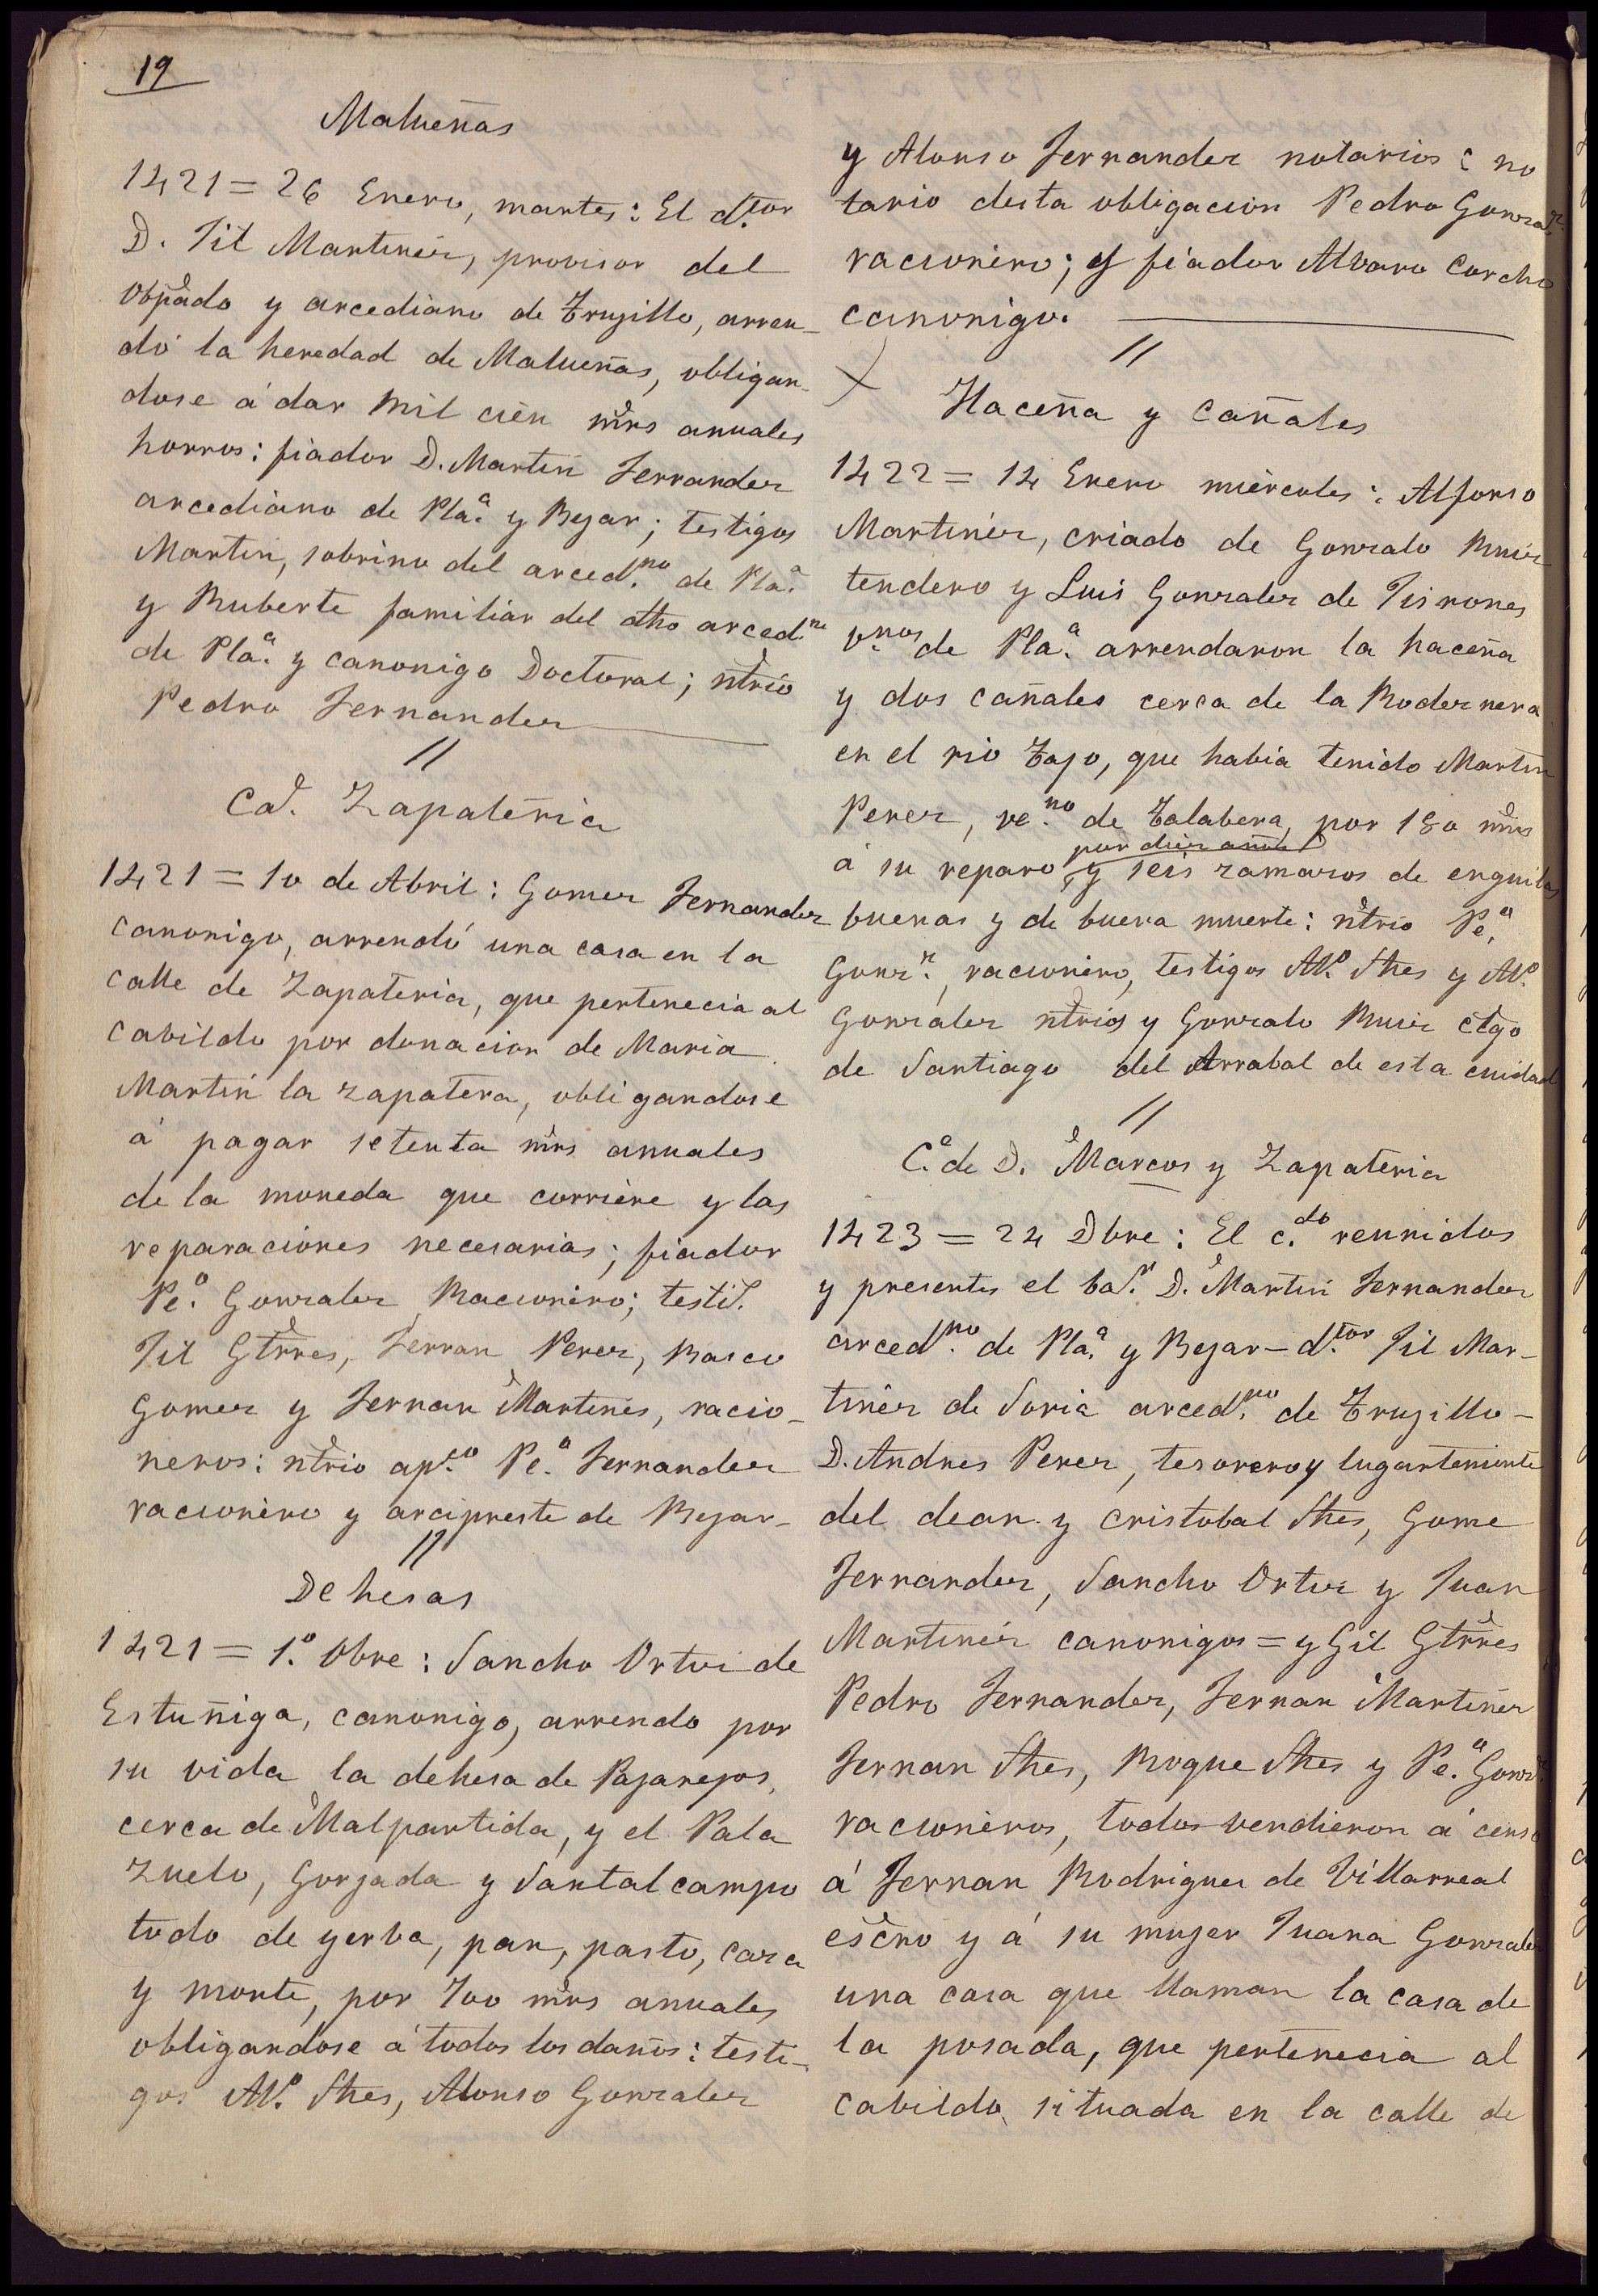 19
Malueñas
1421 = 26 Enero, martes: El d.tor
D. Gil Martinez, provisor del
Obpado y arcediano de Trugillo, arren-
dó la heredad de Malueñas, obligan-
dose á dar mil cien mrs anuales
horros: fiador D. Martin Fernandez
arcediano de Pla.a y Bejar; testigos
Martin, sobrino del arced.no de Pla.a
y Ruberte familiar del dho arced.no
de Pla.a y canonigo Doctoral; ntrio
Pedro Fernandez
//
Ca. Zapateria
1421 = 10 de Abril: Gomez Fernandez
canonigo, arrendó una casa en la
calle de Zapateria, que pertenecia al
Cabildo por donacion de Maria
Martin la zapatera, obligandose
á pagar setenta mrs anuales
de la moneda que corriere y las
reparaciones necesarias; fiador
Pe.o Gonzalez Racionero; testi.
Gil Gtrres, Ferran Perez, Basco
Gomez y Fernan Martines, racio-
neros: ntrio ap.co Pe.o Fernandez
racionero y arcipreste de Bejar-
//
Dehesas
1421 = 1.o Obre: Sancho Ortiz de
Estuñiga, canonigo, arrendo por
su vida la dehesa de Pajarejos,
cerca de Malpartida, y el Pala
zuelo, Gorjada y Santal campo
todo de yerba, pan, pasto, caza
y monte, por 700 mrs anuales
obligandose á todos los daños: testi-
gos Al.o Shes, Alonso Gonzalez
y Alonso Fernandez notarios: no
tario desta obligacion Pedro Gonza.z
racionero; y fiador Alvaro Corcho
canonigo.
//
X Haceña y Cañales
1422 = 14 Enero miercoles: Alfonso
Martinez, criado de Gonzalo Ruiz
tendero y Luis Gonzalez de
v.nos de Pla.a arrendaron la haceña
y dos cañales cerca de la Rodernera
en el rio Tajo, que habia tenido Martin
Perez, ve.no de Talabera, por 180 mrs
por diez años
á su reparo, y seis zamazos de enguilas
buenas y de buena muerte: ntrio Pe.o
Gonz.z, racionero, testigos Al.o Shes y Al.o
Gonzalez ntrios y Gonzalo Ruiz clgo
de Santiago del Arrabal de esta ciudad
//
C.a de D. Marcos y Zapateria
1423 = 24 Dbre: El c.do reunidos
y presentes el ba.r D. Martin Fernandez
arced.no de Pla.a y Bejar - d.tor Gil Mar-
tinez de Soria arced.no de Trugillo -
D. Andres Perez, tesorero y lugarteniente
del dean y Cristobal Shes, Gome
Fernandez, Sancho Ortiz y Juan
Martinez canonigos = y Gil Gtrres
Pedro Fernandez, Fernan Martinez
Fernan Shes, Roque Shes y Pe.o Gonz.z
racioneros, todos vendieron á censo
á Fernan Rodriguez de Villarreal
escno y á su mujer Juana Gonzalez
una casa que llaman la casa de
la posada, que pertenecia al
Cabildo, situada en la calle de